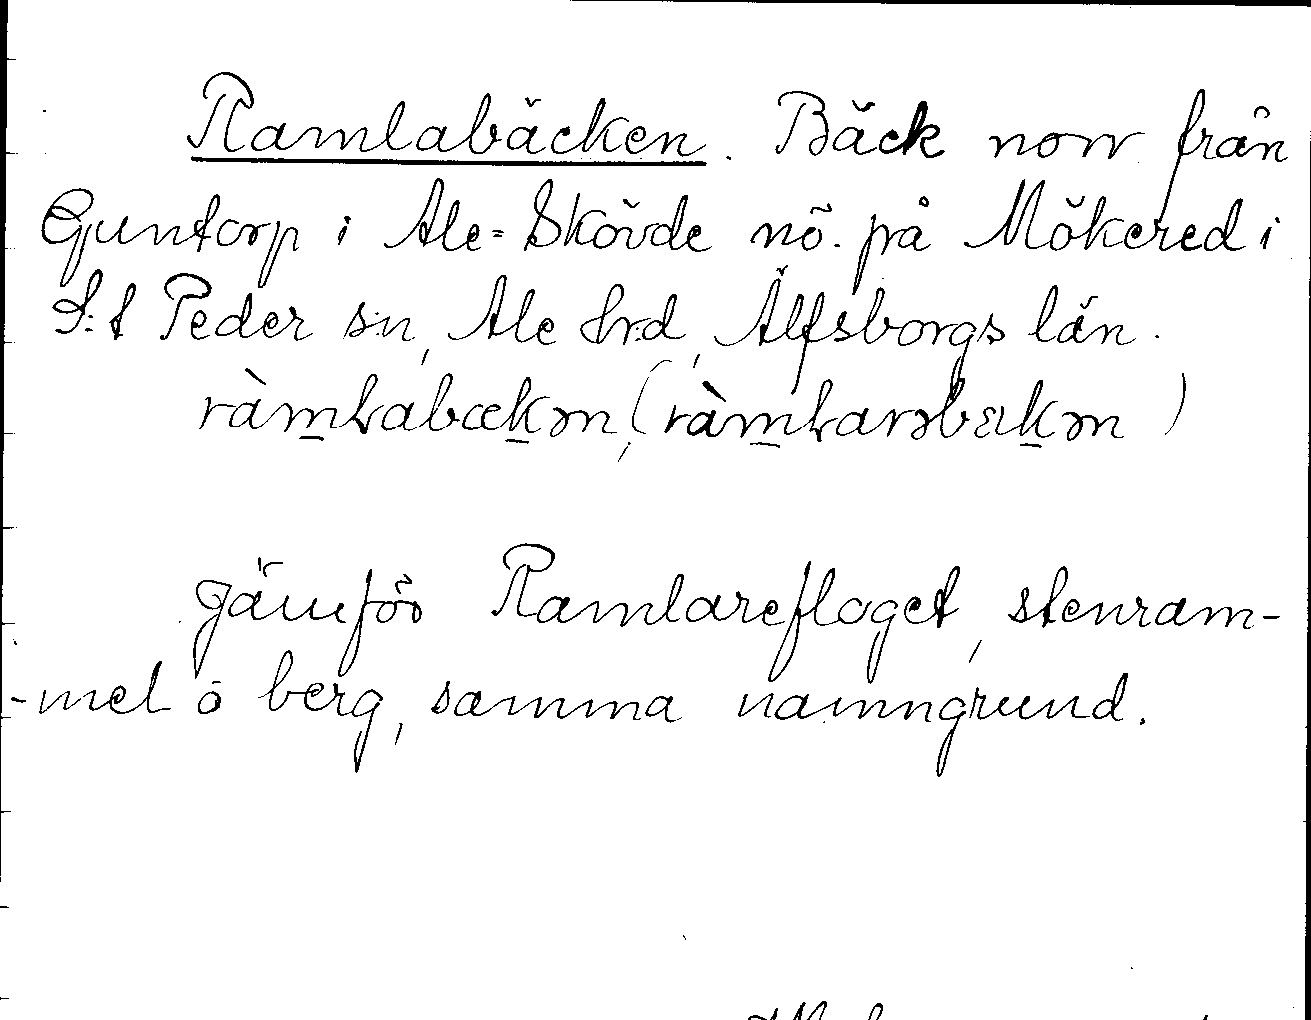 Ramlabäcken. Bäck norr från
Guntorp i Ale-Skövde nö. på Mökered i
S:t Peder sn, Ale hrd, Älfsborgs län.
ràm̲ɫabæk̲ən, (ràm̲ɫarəbæk̲ən)
Jämför Ramlareflaget, stenram-
-mel o berg, samma namngrund.